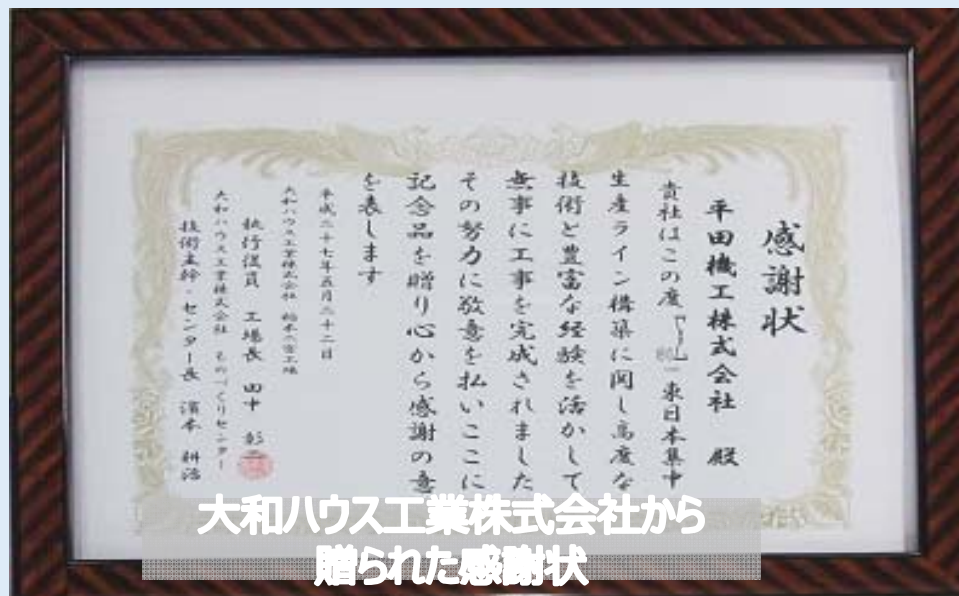 感謝状
平田機工株式会社 殿
貴社はこの度 東日本集中
生産ライン構築に関し高度な
技術と豊富な経験を活かして
無事に工事を完成されました
その努力に敬意を払いここに
記念品を贈り心から感謝の意
を表します
平成二十七年五月二十二日
大和ハウス工業株式会社 栃木二宮工場
執行役員 工場長 田中 彰二
大和ハウス工業株式会社 ものづくりセンター
技術主幹・センター長 濱本
大和ハウス工業株式会社から
贈られた感謝状